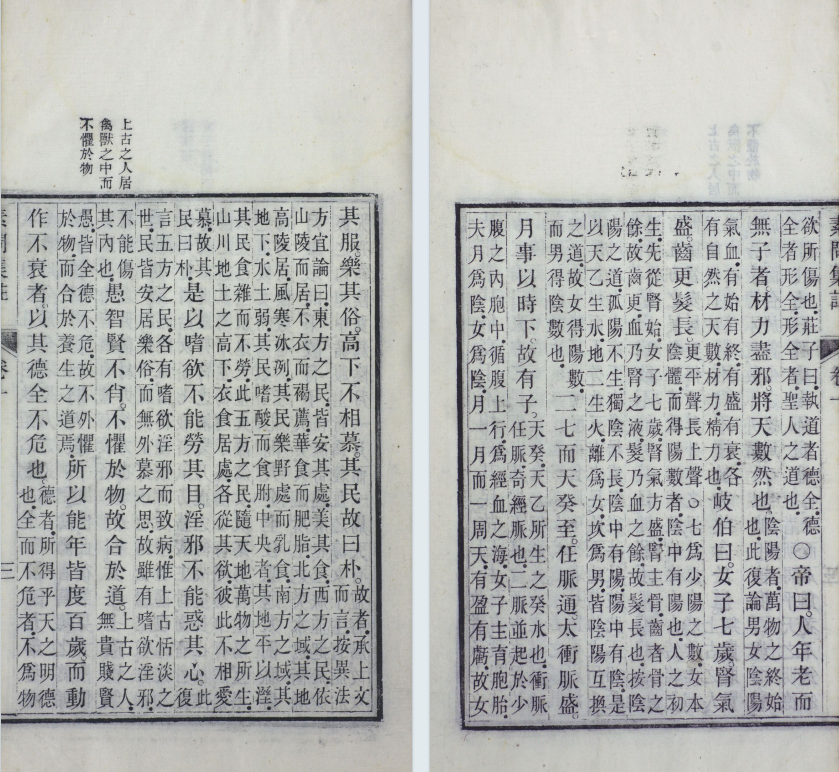 上古之人居
禽獸之中而
不懼於物
其服。樂其俗。高下不相慕。其民故曰朴。故者。承上文
而言。按異法
方宜論曰。東方之民。皆安其處。美其食。西方之民。依
山陵而居。不衣而褐薦。華食而肥脂。北方之域。其地
高陵居。風寒冰冽。其民樂野處而乳食。南方之域。其
地下。水土弱。其民嗜酸而食胕。中央者。其地平以溼。
其民食雜而不勞。此五方之民。隨天地萬物之所生。
山川地土之高下。衣食居處。各從其欲。彼此不相愛
慕。故其
民曰朴。
是以嗜欲不能勞其目。淫邪不能惑其心。此
復
言五方之民。各有嗜欲淫邪而致病。惟上古恬淡之
世。民皆安居樂俗。而無外慕之思。故雖有嗜欲淫邪。
不能傷
其內也。
愚智賢不肖。不懼於物。故合於道。上古之人。
無貴賤賢
愚。皆全德不危。故不外懼
於物。而合於養生之道焉。
所以能年皆度百歲。而動
作不衰者。以其德全不危也。德者。所得乎天之明德
也。全而不危者。不為物
素問集註
卷一
三
欲所傷也。莊子曰。執道者德全。德
全者形全。形全者。聖人之道也。
○帝曰。人年老而
無子者。材力盡邪。將天數然也。陰陽者。萬物之終始
也。此復論男女陰陽
氣血。有始有終。有盛有衰。各
有自然之天數。材力。精力也。
岐伯曰。女子七歲。腎氣
盛。齒更髮長。更平聲長上聲○七為少陽之數。女本
陰體。而得陽數者。陰中有陽也。人之初
生。先從腎始。女子七歲。腎氣方盛。腎主骨。齒者骨之
餘。故齒更。血乃腎之液。髮乃血之餘。故髮長也。按陰
陽之道。孤陽不生。獨陰不長。陰中有陽。陽中有陰。是
以天乙生水。地二生火。離為女。坎為男。皆陰陽互換
之道。故女得陽數。
而男得陰數也。
二七而天癸至。任脈通。太衝脈盛。
月事以時下。故有子。天癸。天乙所生之癸水也。衝脈
任脈。奇經脈也。二脈並起於少
腹之內胞中。循腹上行。為經血之海。女子主育胞胎。
夫月為陰。女為陰。月一月而一周天。有盈有虧。故女